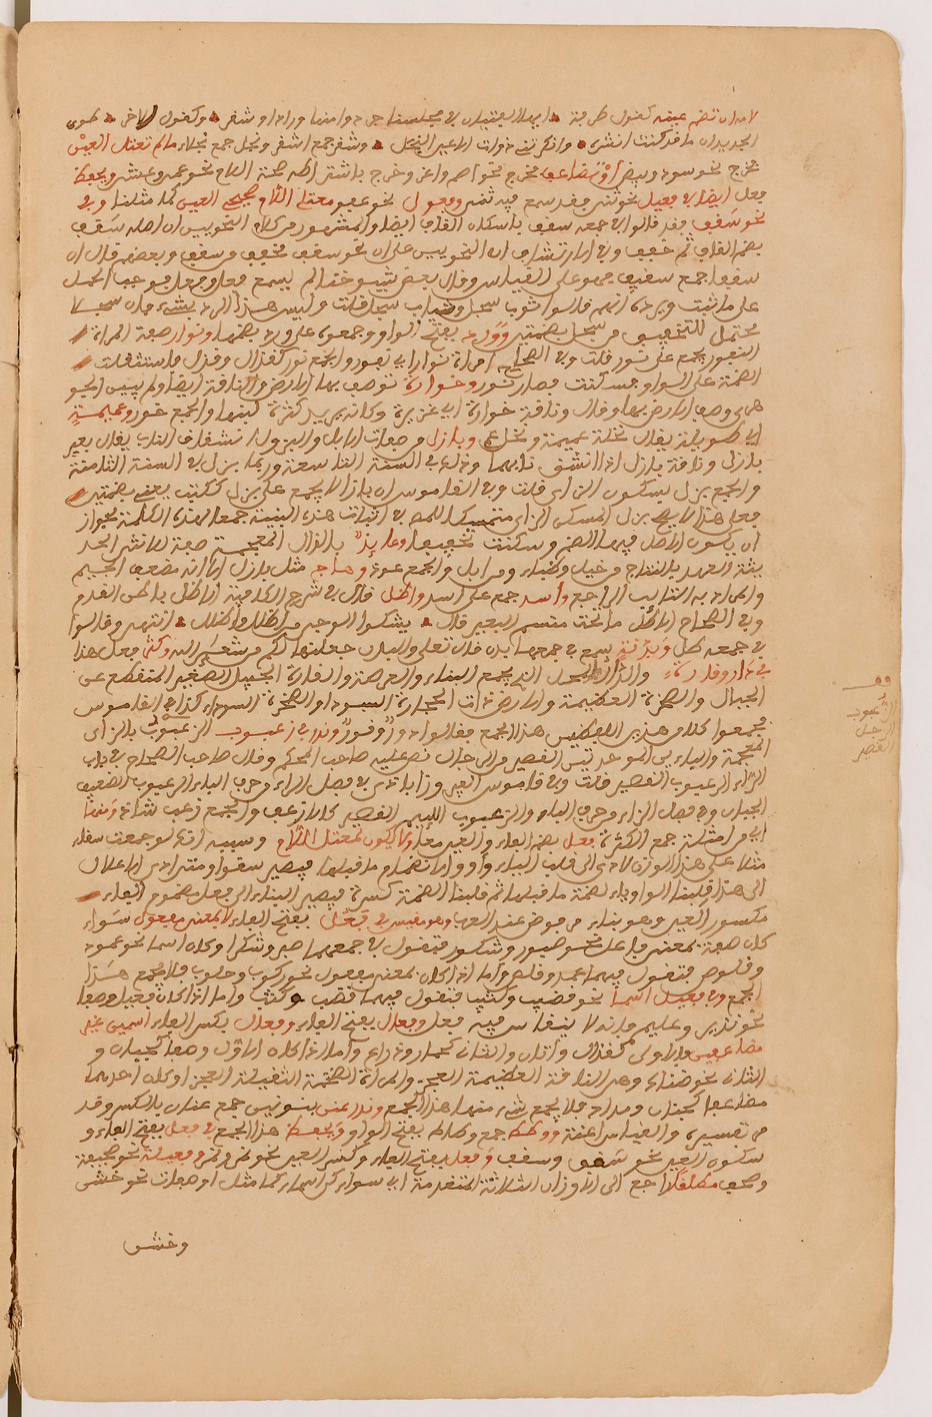 لا مه ان تضم عينه كقول طرفة ايها الفتيان في مجلسنا جردوا منها ورادا وشقر وكقول الاخر طوى
الجديدان ما قد كنت انشره وانكرتني ذوات الاعين النجل وشقر جمع اشقر ونجل جمع نجلاء ما لم تعتل العين
فخرج نحو سود وبيض او تضاعف فخرج نحو اصم واغر وخرج باشتراط صحة اللام نحو عمي وعشي ويحفظ
فعل ايضا في فعيل نحو نذير فقد سمع فيه نذر وفعول نحو عفو معتل اللام صحيح العين كما مثلنا وفي
نحو سقف فقد قالوا في جمعه سقف باسكان القاف ايضا والمشهور من كلام النحويين ان اصله سقف
بضم القاف ثم خفف وفي الارتشاف ان النحويين على ان نحو سقف مخفف من سقف وبعضهم قال ان
سقفا جمع سقيف فهو على القياس وقال بعض شيوخنا لم يسمع فعل وفعل فوجب الحمل
على ما ثبت ويرده انهم قالوا ثوب سحل وثياب سحل قلت وليس هذا الرد بشيء فان سحلا
محتمل للتخفيف من سحل بضمتين وورد بفتح الواو وجمعوه على ورد بضمها ونوار صفة المراة
النفور يجمع على نور قلت وفي الصحاح امراة نوار اي نفور والجمع نور كقذال وقذل فاستثقلت
الضمة على الواو فسكنت فصار نور وخوارة توصف بها الارض والناقة ايضا ولم يبين الجو
هري وصف الارض بها وقال وناقة خوارة اي غزيرة وكانه يريد كثرة لبنها والجمع خور وعميمة
اي طويلة يقال نخلة عميمة ونخل عم وبازل من صفات الابل والبزول انشقاق الناب يقال بعير
بازل وناقة بازل اذا انشق نابهما وذلك في السنة التاسعة وربما بزل في السنة الثامنة
والجمع بزل بسكون الزاي قلت وفي القاموس ان بازلا يجمع على بزل ككتب يعني بضمتين
فعلى هذا لا يبقى بزل المسكن الزاي متمسكا للمص في اثبات هذه البنية جمعا لهذه الكلمة لجواز
ان يكون الاصل فيها الضم وسكنت تخفيفا وعايذ بالذال المعجمة صفة للانثى الحد
يثة العهد بالنتاج من خيل وظباء وابل والجمع عوذ وحاج مثل بازل الا انه مضعف الجيم
والمراد به التايب الراجع واسد جمع على اسد واظل قال في شرح الكافية الاظل باطن القدم
وفي الصحاح الاظل ما تحت منسم البعير قال يشكوا الوجى من اظلل واظلل انتهى وقالوا
في جمعه ظل وبدنة سمع في جمعها بدن قال تعالى والبدن جعلناها لكم من شعائر الله وكثر فعل هذا
في دار وقارة والدار المحل الذي يجمع البناء والعرصة والقارة الجبيل الصغير المنقطع عن
الجبال والصخرة العظيمة والارض ذات الحجارة السود او الصخرة السوداء كذا في القاموس
فجمعوا كلا من هذين اللفظين هذا الجمع فقالوا دور وقور وندر في زعبوب الزعبوب بالزاي
المعجمة والباءين الموحدتين القصير من الرجال نص عليه صاحب المحكم وقال صاحب الصحاح في باب
الراء الرعبوب القصير قلت وفي قاموس الفيروزابادي في فصل الراء وحرف الباء الرعبوب الضعيف
الجبان وفي فصل الزاء وحرف الباء والزعبوب اللئيم القصير كالازعب والجمع زعب شاذة ومنها
اي من امثلة جمع الكثرة فعل بضم الفاء والعين معا ولا يكون لمعتل اللام وسببه انك لو جمعت سقاء
مثلا على هذا الوزن لادى الى قلب الياء واوا لانضمام ما قبلها فيصير سقو او متى ادى الاعلال
الى هذا قلبنا الواو ياء لضمة ما قبلها ثم قلبنا الضمة كسرة فيصير البناء الى فعل مضموم الفاء
مكسور العين وهو بناء مرفوض عند العرب وهو مقيس في فعول بفتح الفاء لا بمعنى مفعول سواء
كان صفة بمعنى فاعل نحو صبور وشكور فتقول في جمعهما صبر وشكر او كان اسما نحو عمود
وقلوص فتقول فيهما عمد وقلص واما اذا كان بمعنى مفعول نحو ركوب وحلوب فلا يجمع هذا
الجمع وفي فعيل اسما نحو قضيب وكثيب فتقول فيهما قضب وكثب واما اذا كان فعيل وصفا
نحو نذير وعليم فانه لا ينقاس فيه فعل وفعال بفتح الفاء وفعال بكسر الفاء اسمين غير
مضاعفين فالاول كقذال واتان والثاني كحمار وذراع واما اذا كان الاول وصفا كجبان و
الثاني نحو ضناك وهي الناقة العظيمة العجز والمراة الضخمة الثقيلة العجز او كان احدهما
مضاعفا كجنان ومداد فلا يجمع شيء منهما هذا الجمع وندر عنن بنونين جمع عنان بالكسر وقد
مر تفسيره والقياس اعنة ووطط جمع وطواط بفتح الواو ويحفظ هذا الجمع في فعل بفتح الفاء و
سكون العين نحو سقف وسقف وفعل بفتح الفاء وكسر العين نحو نمر ونمر وفعيلة نحو صحيفة
وصحف مطلقا راجع الى الاوزان الثلاثة المتقدمة اي سواء كن اسماء كما مثل او صفات نحو خشن
وخشن
قف
الزعبوب
الرجل
القصير